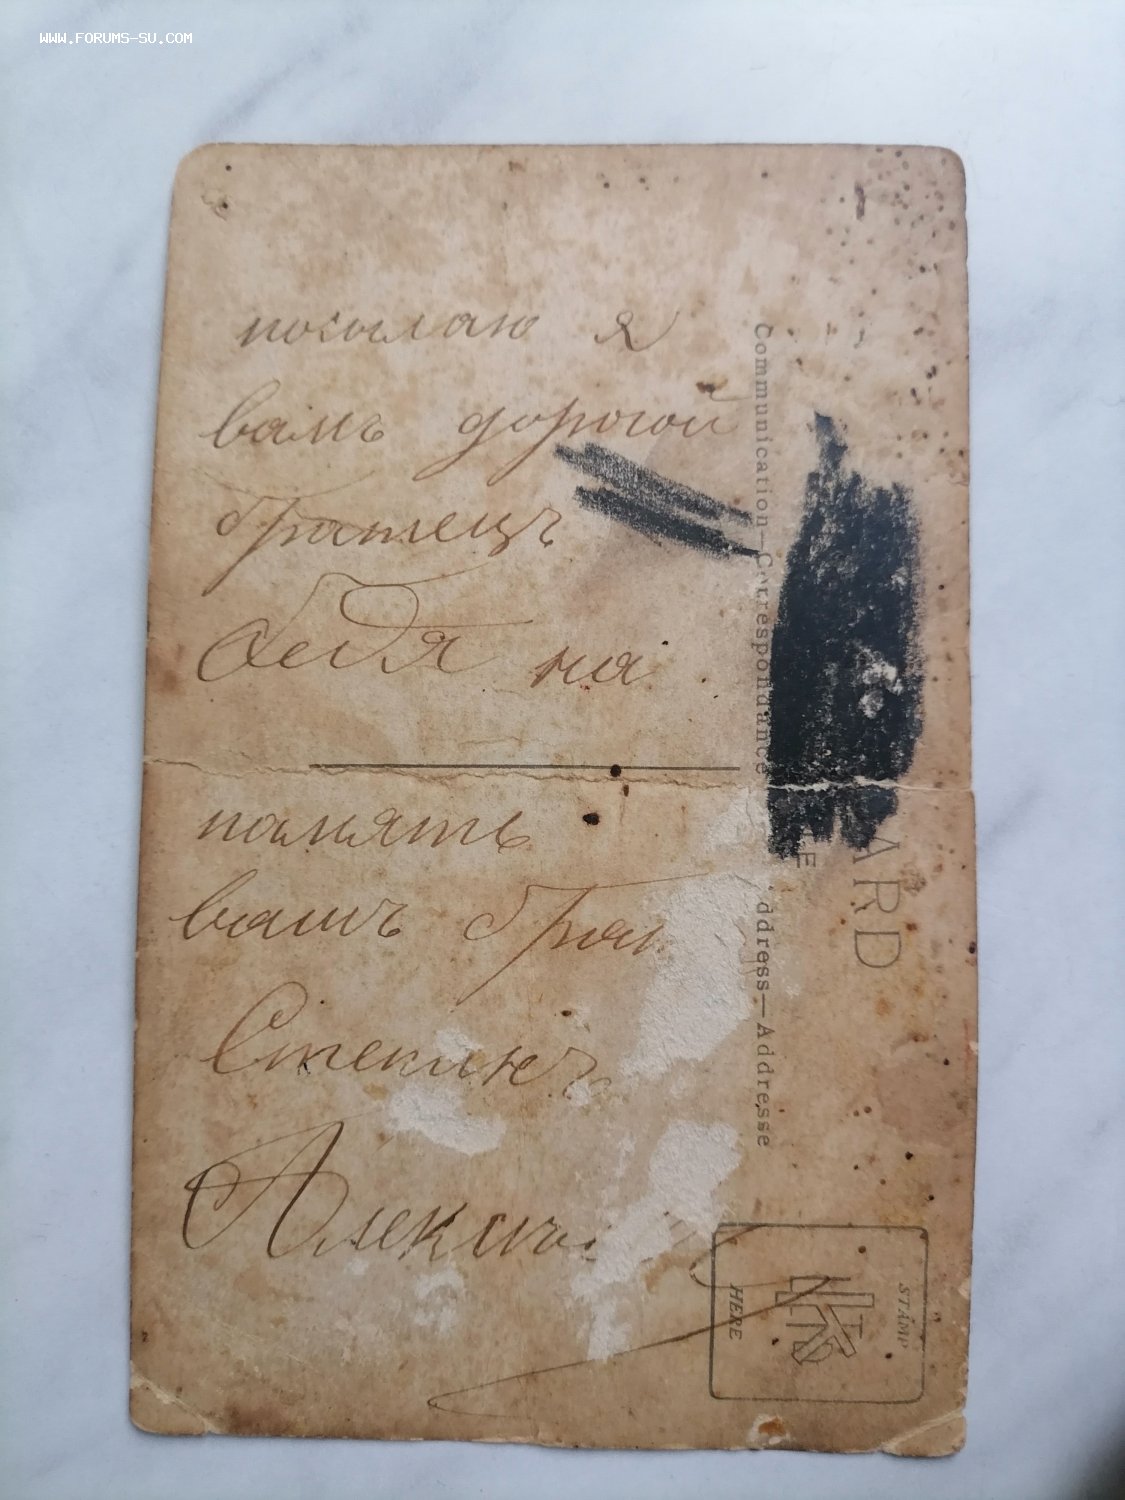 WWW.FORUMS-SU.COM
посылаю я
вамъ дорогой
братецъ
Федя на
память
вашъ брат
Communication—Correspondance
ddress—Addresse
ARD
STAMP
HERE